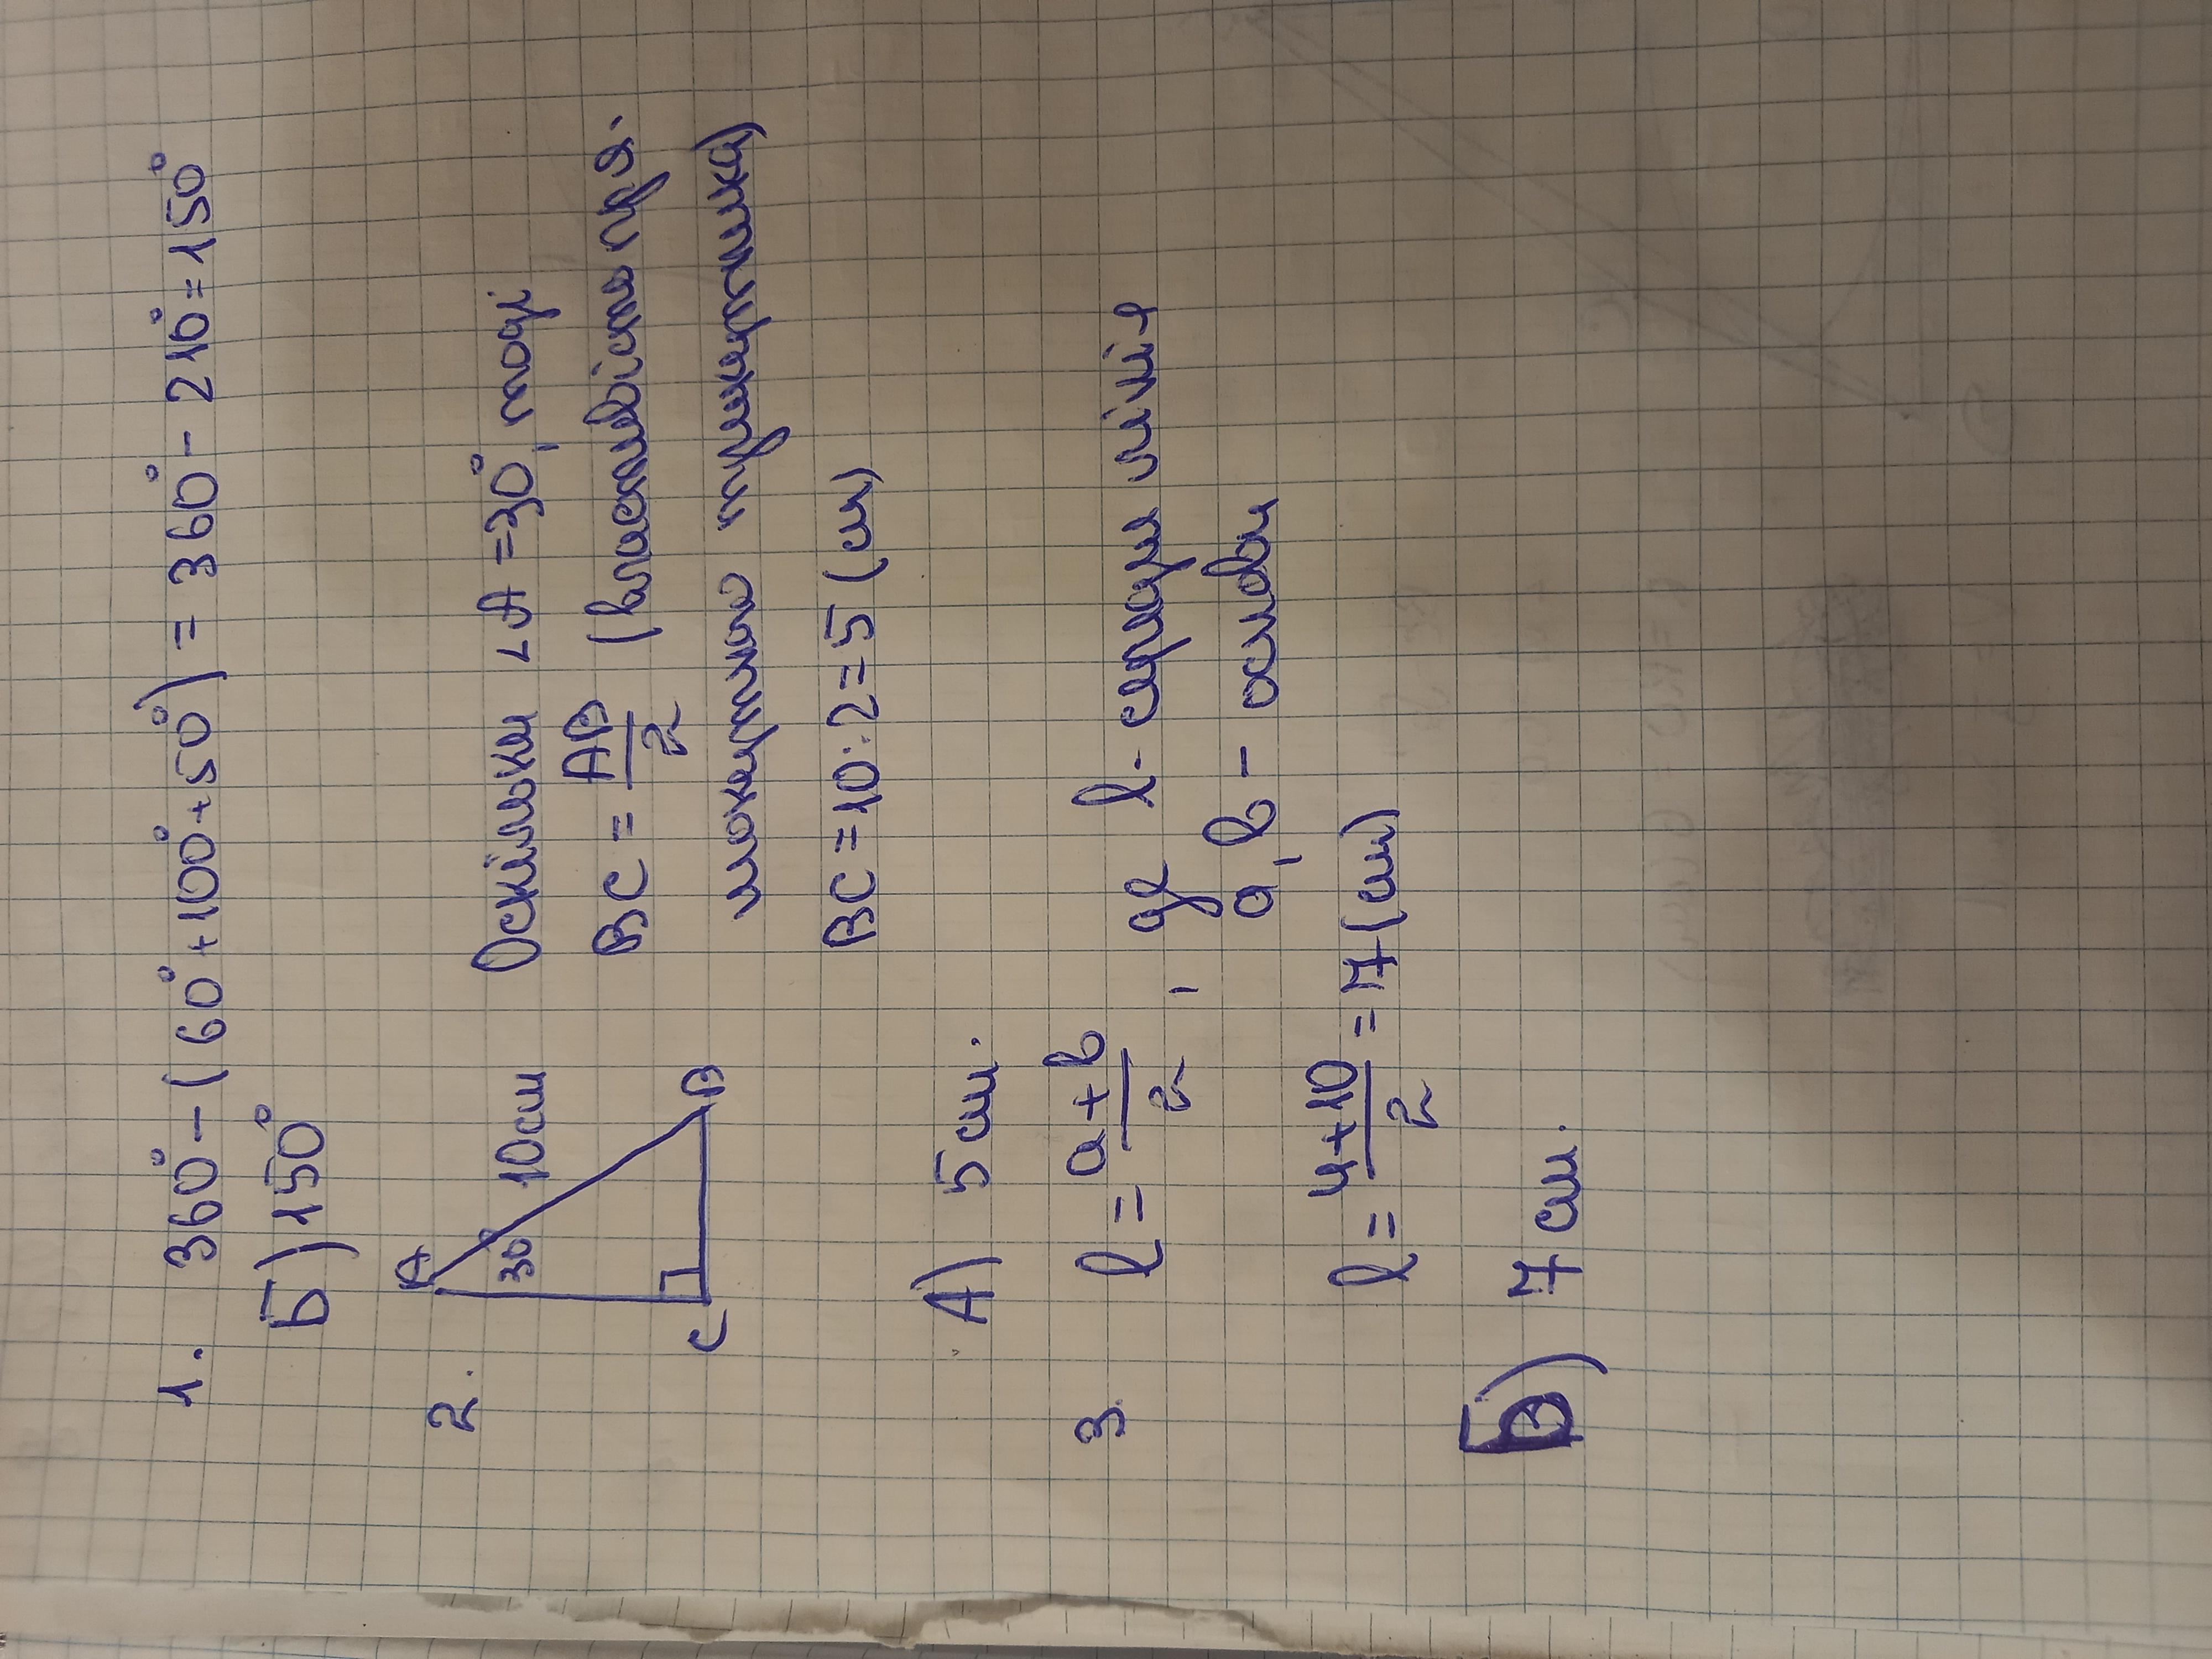 1. 360° - (60° + 100° + 50°) = 360° - 210° = 150°
Б) 150°
2.
A
30°
10 см
C
B
Оскільки ∠A = 30°, тоді
BC = AB/2 (властивість пря-
мокутного трикутника)
BC = 10 : 2 = 5 (см)
А) 5 см.
3. l = a+b/2, де l - середня лінія
a, b - основи
l = 4+10/2 = 7 (см)
Б) 7 см.